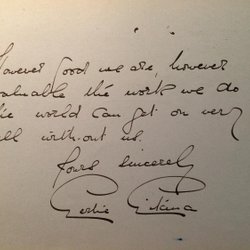 However good we are, however
valuable the work we do
the world can get on very
well without us.
Yours sincerely
Gertie Gitana